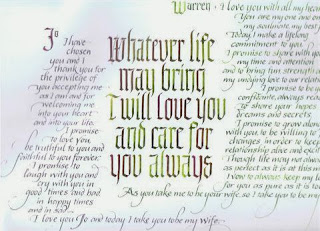 Jo I have
chosen
you and I
thank you for
the privilege of
you accepting me
as I am and for
welcoming me
into your heart
and into your life.
I promise
to love you,
be truthful to you and
faithful to you forever.
I promise to
laugh with you and
cry with you in
good times and bad
in happy times
and in sad.
I love you Jo and today I take you to be my wife.
Whatever life
may bring
I will love you
and care for
you always
Warren · I love you with all my hear
You are my one and on
my soulmate, my best
Today I make a lifelong
commitment to you.
I promise to share with yo
my time and attention
and to bring fun strength a
my undying love to our relatio
I promise to be you
confidante, always read
to share your hopes
dreams and secrets.
I promise to grow along
with you, to be willing to
changes, in order to keep
relationship alive and exciti
Though life may not always
as perfect as it is at this mo
vow to always keep my lo
for you as pure as it is tod
As you take me to be your wife, so I take you to be my